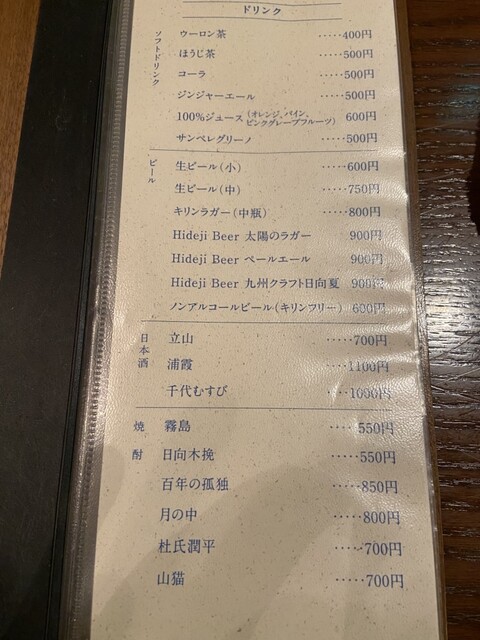 ドリンク
ソフトドリンク
ウーロン茶 ・・・・・400円
ほうじ茶 ・・・・・500円
コーラ ・・・・・500円
ジンジャーエール ・・・・・500円
100%ジュース（オレンジ、パイン、ピンクグレープフルーツ） 600円
サンペレグリーノ ・・・・・500円
ビール
生ビール（小） ・・・・・600円
生ビール（中） ・・・・・750円
キリンラガー（中瓶） ・・・・・800円
Hideji Beer 太陽のラガー 900円
Hideji Beer ペールエール 900円
Hideji Beer 九州クラフト日向夏 900円
ノンアルコールビール（キリンフリー） 600円
日本酒
立山 ・・・・・700円
浦霞 ・・・・1100円
千代むすび ・・・・1000円
焼酎
霧島 ・・・・・550円
日向木挽 ・・・・・550円
百年の孤独 ・・・・・850円
月の中 ・・・・・800円
杜氏潤平 ・・・・・700円
山猫 ・・・・・700円